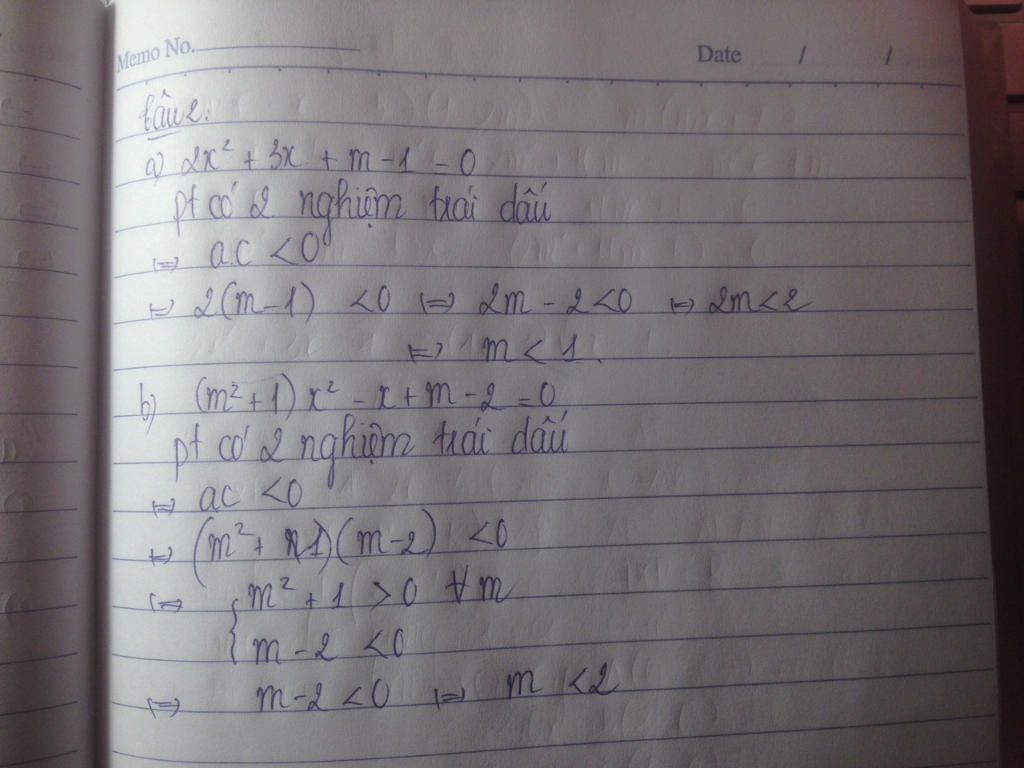 Memo No.
Date / /
Câu 2:
a) 2x² + 3x + m - 1 = 0
pt có 2 nghiệm trái dấu
⇔ a.c < 0
⇔ 2(m-1) < 0 ⇔ 2m - 2 < 0 ⇔ 2m < 2
⇔ m < 1.
b) (m² + 1) x² - x + m - 2 = 0
pt có 2 nghiệm trái dấu
⇔ ac < 0
⇔ (m² + 1)(m-2) < 0
⇔ { m² + 1 > 0 ∀ m
m - 2 < 0
⇔ m - 2 < 0 ⇔ m < 2